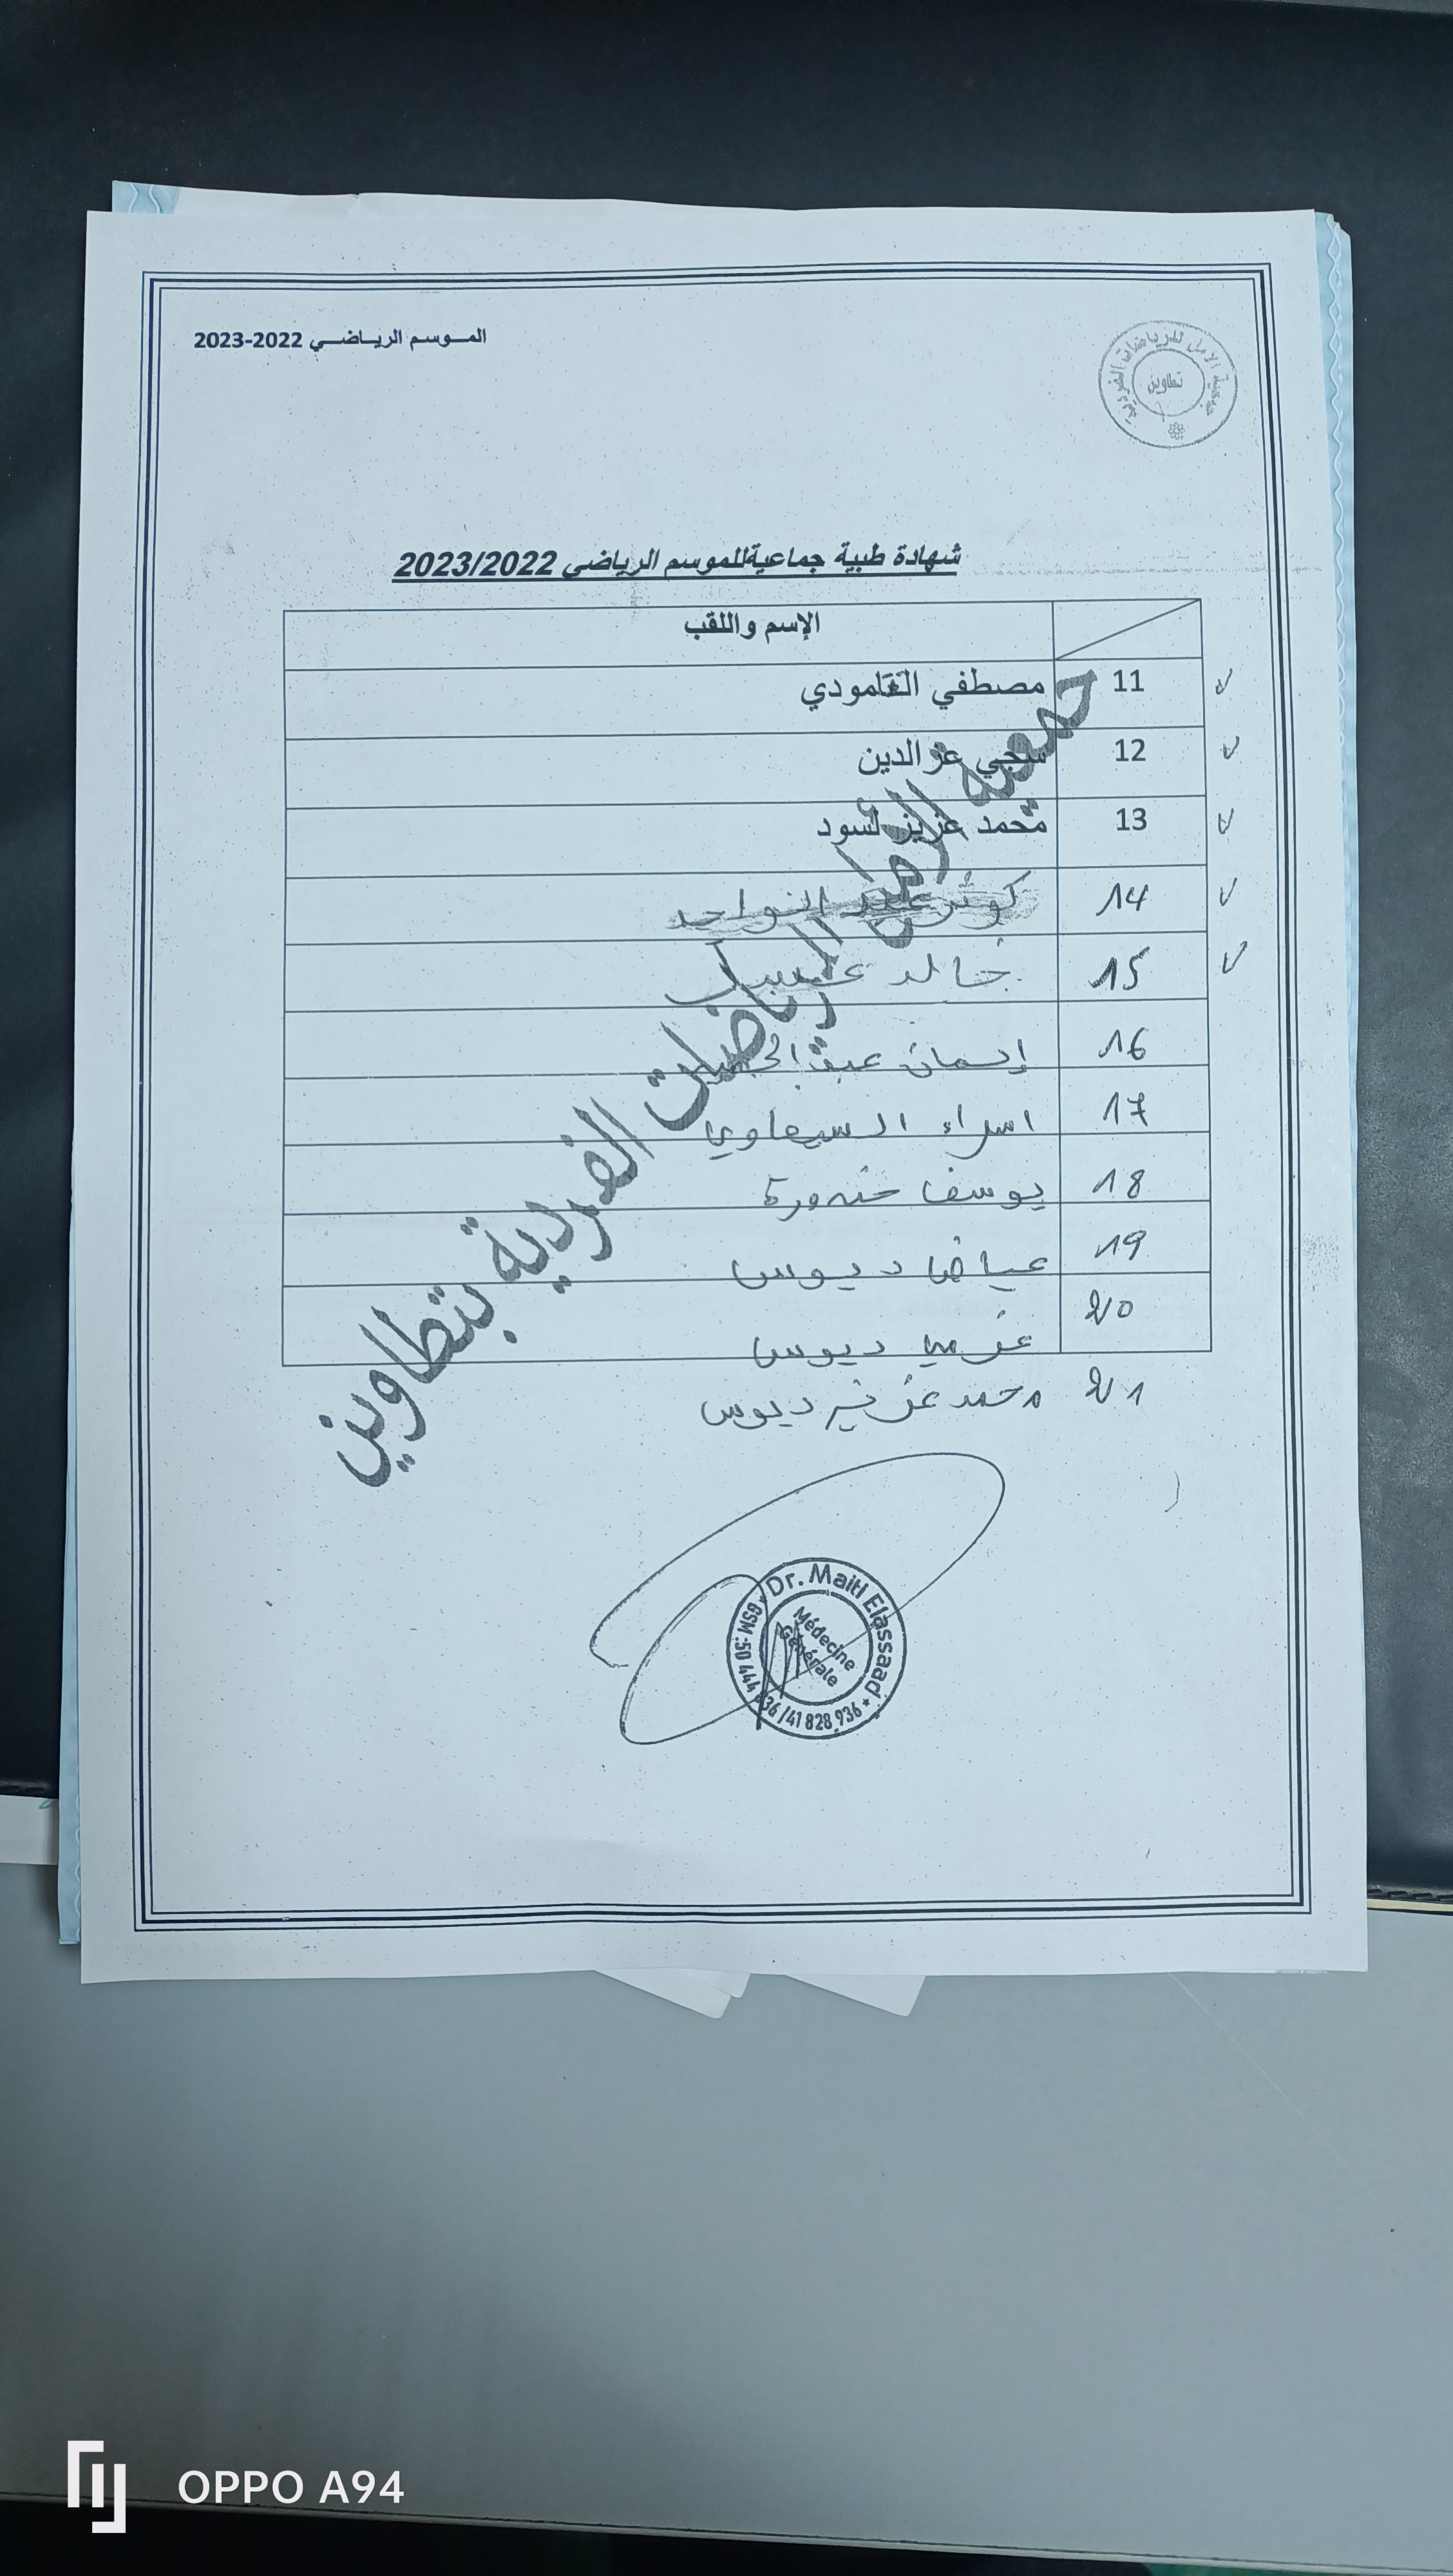 الموسم الرياضي 2022-2023
جمعية الأمل للرياضات الفردية
تطاوين
شهادة طبية جماعيةللموسم الرياضي 2023/2022
الإسم واللقب
11 مصطفي الغامودي
12 سجي عزالدين
13 محمد عزيز لسود
14 كوثر عبد الواحد
15 خالد
16 إيمان
17 اسراء السيعاوي
18 يوسف
19 عياض ديوس
20 عزمي ديوس
21 محمد عزيز ديوس
جمعية الأمل للرياضات الفردية بتطاوين
Dr. Maitl Elassaad
Médecine
Générale
GSM :50 444 936 /41 828 936
OPPO A94